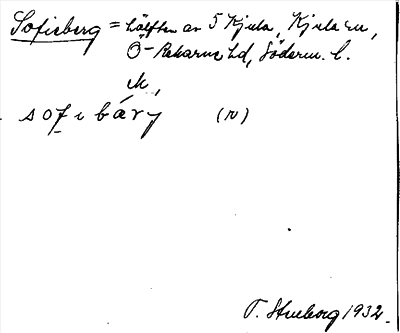 Sofieberg = hälften av 5 Kjula, Kjula sn,
Ö-Rekarne hd, Söderm. l.
sofibärj (N)
T. Struborg 1932.